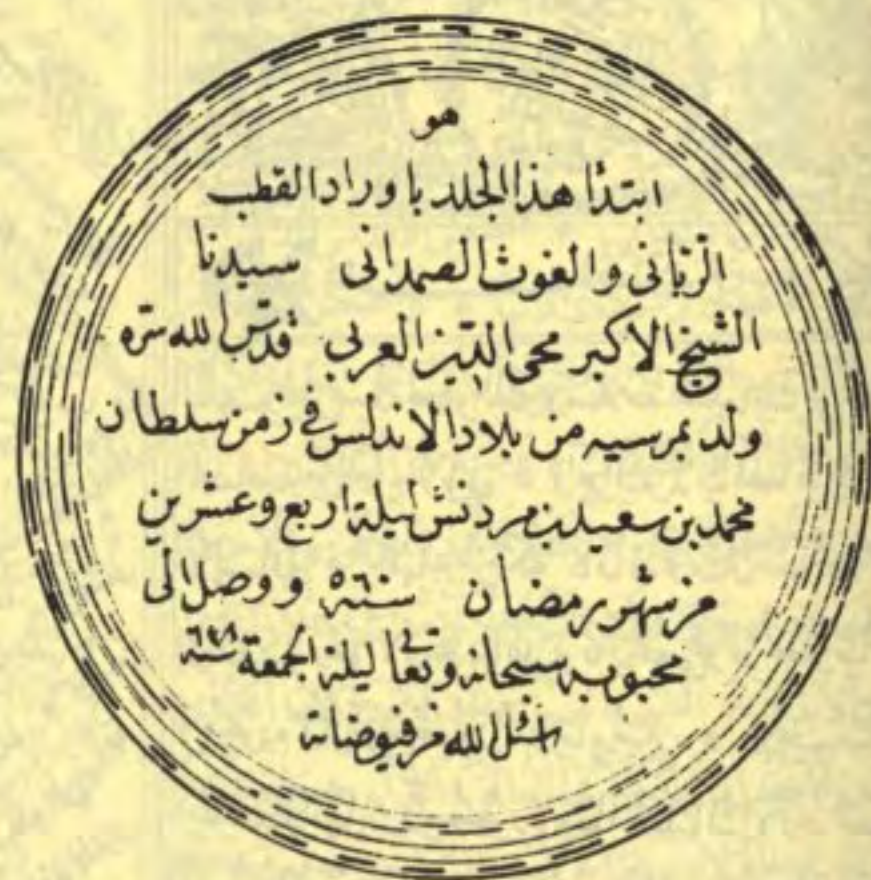 هو
ابتدأ هذا المجلد باوراد القطب
الربانى والغوث الصمدانى سيدنا
الشيخ الاكبر محى الدين العربى قدس الله سره
ولد بمرسيه من بلاد الاندلس فى زمن سلطان
محمد بن سعيد بن مردنش ليلة اربع وعشرين
من شهر رمضان سنة ٥٦٠ ووصل الى
محبوبه سبحانه وتعالى ليلة الجمعة سنة ٦٣٨
الله من فيوضاته